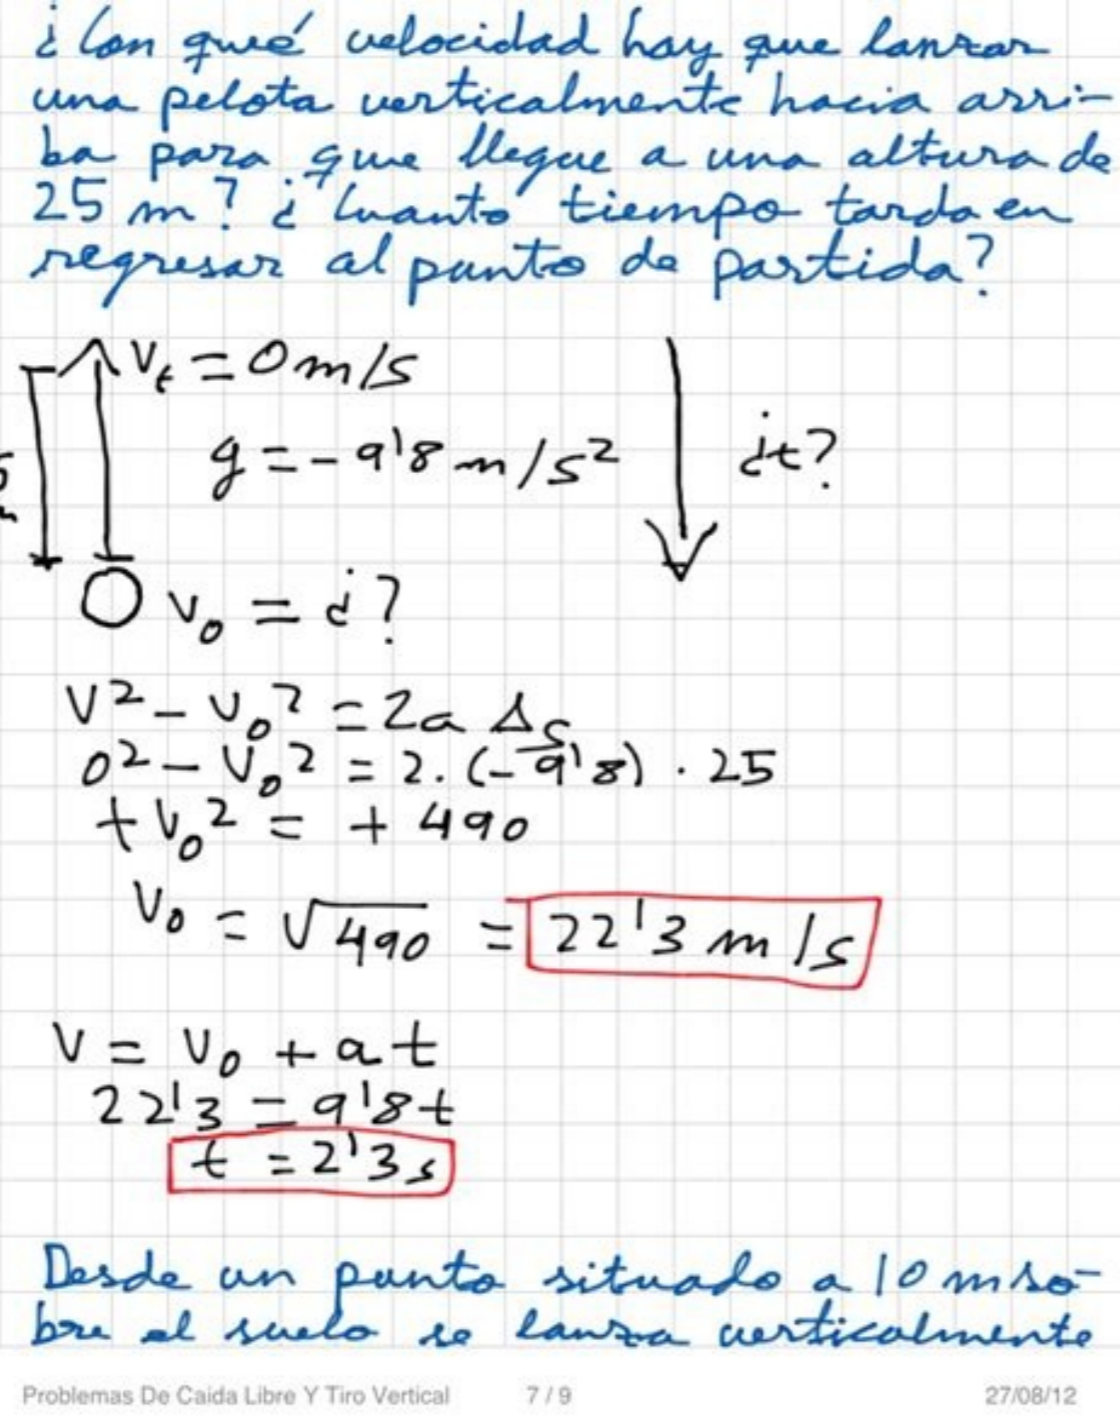 ¿Con qué velocidad hay que lanzar
una pelota verticalmente hacia arri-
ba para que llegue a una altura de
25 m? ¿Cuanto tiempo tarda en
regresar al punto de partida?
Vt = 0 m/s
g = - 9'8 m/s²
¿t?
v₀ = ¿?
V² - V₀² = 2a Δs
0² - V₀² = 2. (-9'8) . 25
+ V₀² = + 490
V₀ = √490 = 22'3 m/s
V = V₀ + at
22'3 = 9'8t
t = 2'3 s
Desde un punto situado a 10 m so-
bre el suelo se lanza verticalmente
Problemas De Caida Libre Y Tiro Vertical 7 / 9 27/08/12